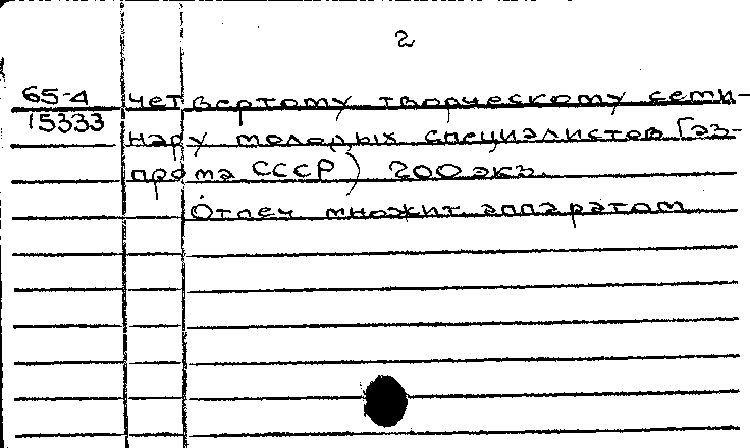 2
65-4 четвертому творческому семи-
15333 нару молодых специалистов Газ-
прома СССР) 200 экз.
Отпеч множит. аппаратом